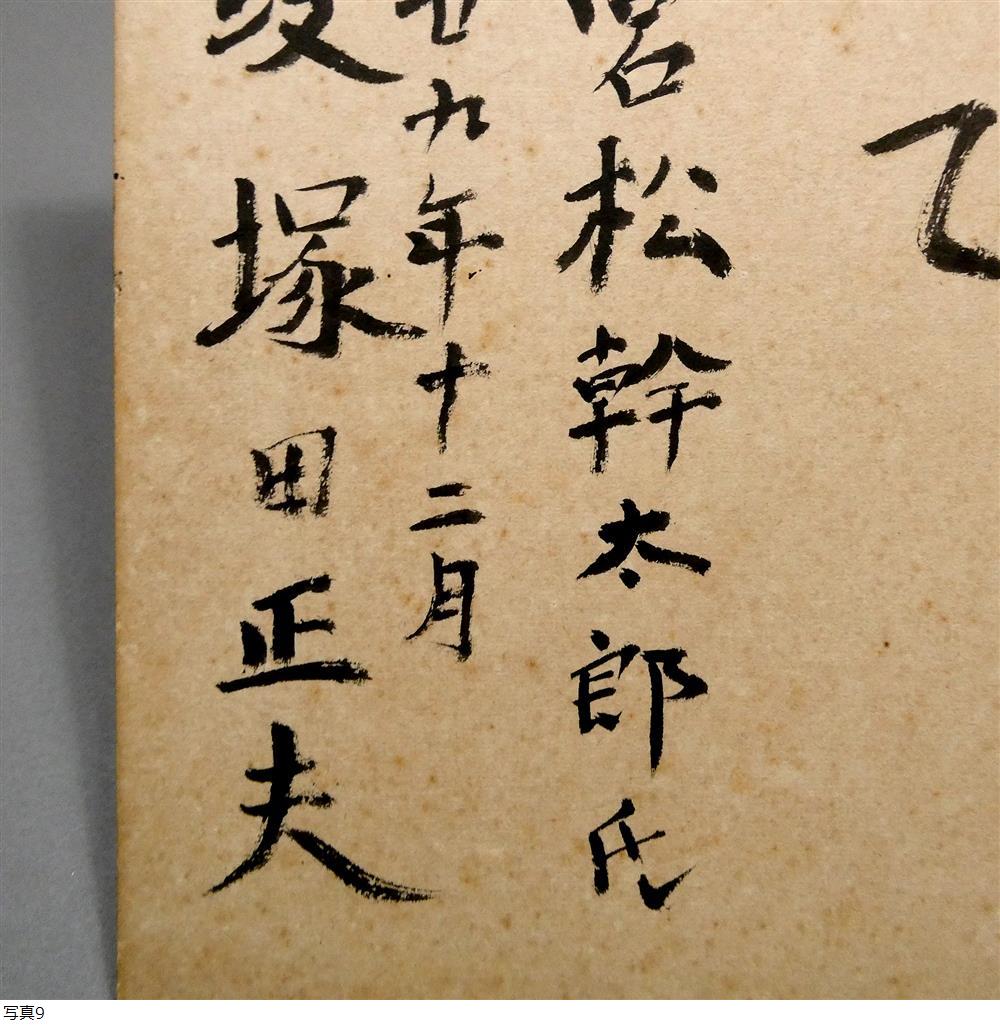 宮松幹太郎氏
廿九年十二月
段塚田正夫
写真9